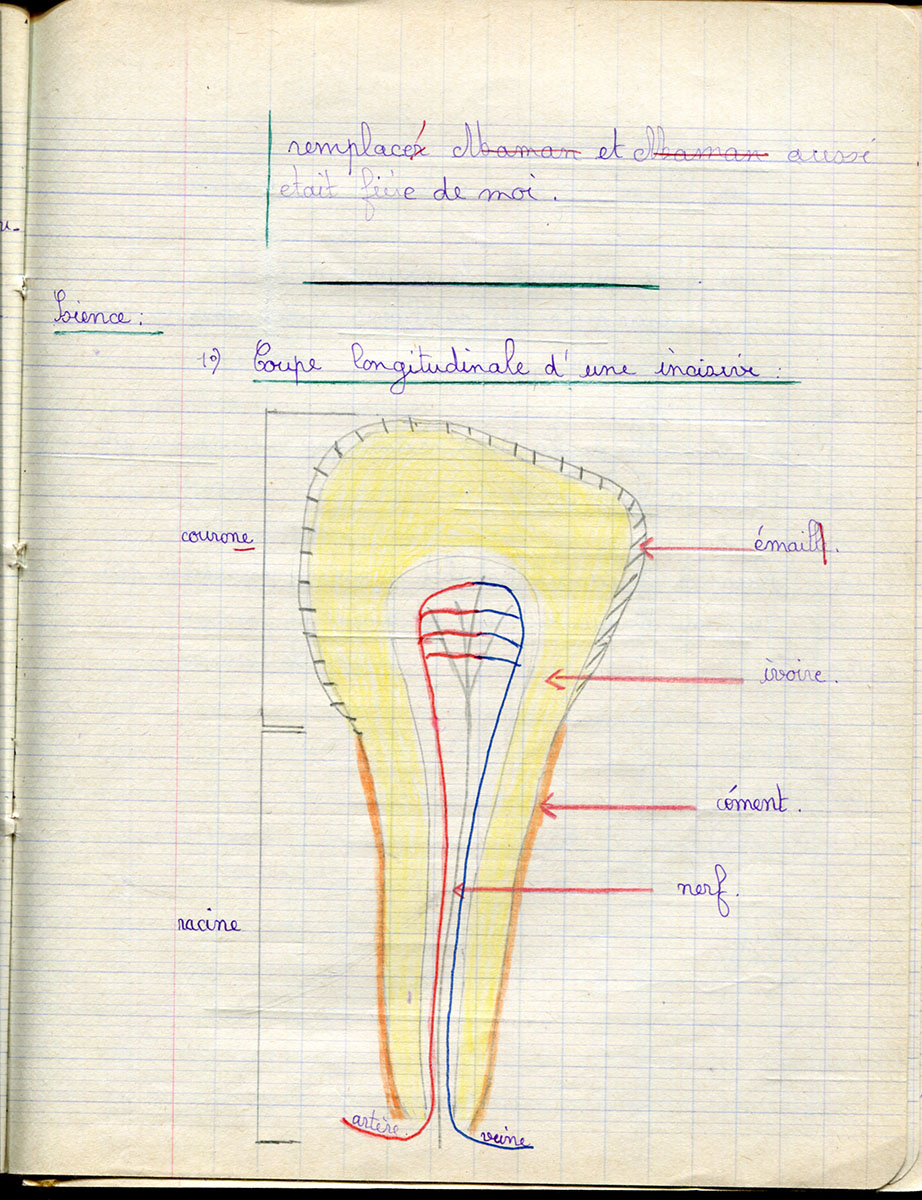 remplacé Maman et Maman aussi
était fière de moi.
Sience :
1º) Coupe longitudinale d'une incisive :
courone
émaill.
ivoire.
cément.
nerf.
racine
artère.
veine